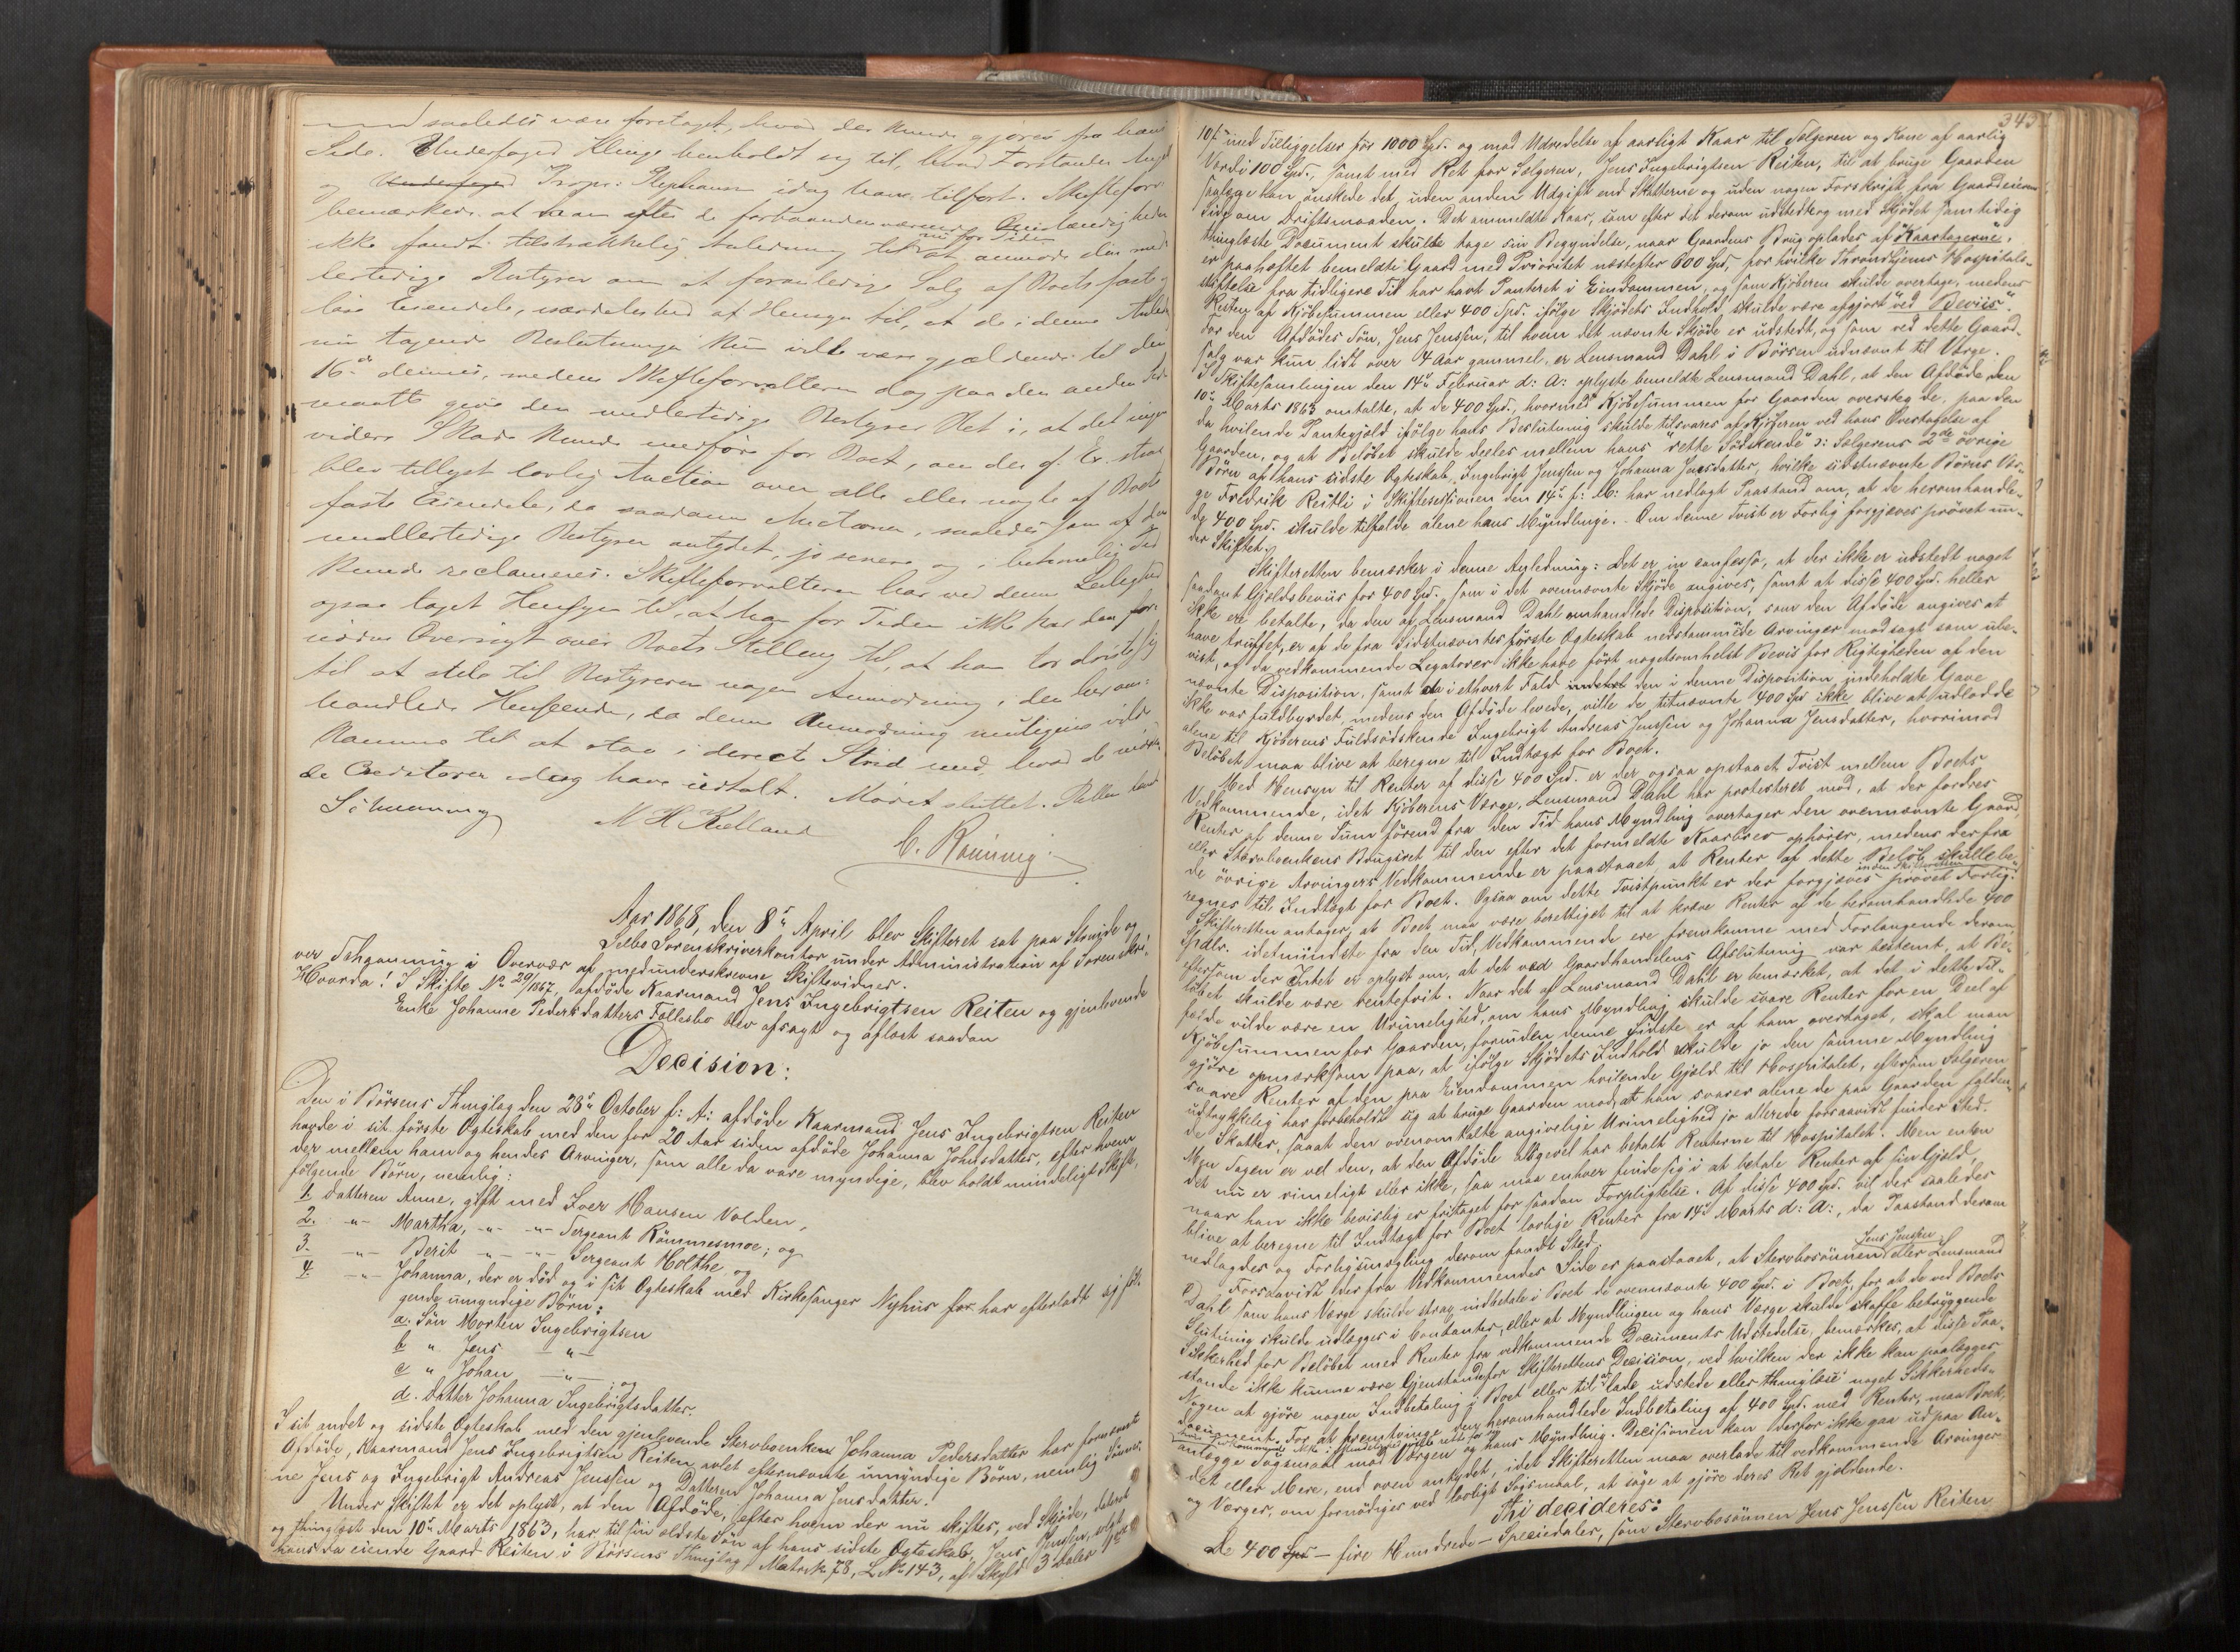 saaledes være foretaget, hvad der kunde gjøres fra hans
Side. Underfoged Klenge henholdt sig til, hvad Forstander
og Propr: Stephansen idag have tilført. Skifteforv
bemærkede at man efter de forhaandenværende Omstændigheder
ikke fandt tilstrækkelig Anledning til nu for Tiden at anmode den mid-
lertidige Bestyrer om at foranledige Salg af Boets faste og
løse Eiendele, især af Hensyn til, at de i denne Anledn
nu tagende Beslutninger kun vilde være gjældende til den
16de dennes, medens Skifteforvalteren dog paa den anden Side
maatte give den midlertidige Bestyrer Ret i, at det ingen
videre Skade kunde medføre for Boet, om der f. Ex. strax
blev tillyst lovlig Auction over alle eller nogle af Boets
faste Eiendele, da saadanne Auctioner, saaledes som af den
midlertidige Bestyrer antydet, jo senere og i betimelig Tid
kunde reclameres. Skifteforvalteren har ved denne Leilighed
ogsaa taget Hensyn til, at han for Tiden ikke har den for-
nødne Oversigt over Boets Stilling til, at han tør driste sig
til at stile til Bestyreren nogen Anmodning i den herom-
handlede Henseende, da denne Anmodning muligens vilde
komme til at staa i directe Strid med, hvad de
de Creditorer idag have udtalt. Mødet sluttet. Retten hævet
N H Kielland
C. Rønning
Aar 1868, den 8de April blev Skifteret sat paa Strinde og
Selbo Sorenskriverkontor under Administration af Sorenskri-
ver i Overvær af medunderskrevne Skiftevidner.
Hvorda! I Skifte No 29/1867, afdøde Kaarmand Jens Ingebrigtsen Reiten og gjenlevende
Enke Johanne Pedersdatters Fællesbo blev afsagt og aflæst saadan
Decision:
Den i Børsens Thinglag den 28de October f: A: afdøde Kaarmand Jens Ingebrigtsen Reiten
havde i sit første Ægteskab med den for 20 Aar siden afdøde Johanna Johnsdatter, efter hvem
der mellem ham og hendes Arvinger, som alle da vare myndige, blev holdt mindeligt Skifte,
følgende Børn, nemlig:
1. Datteren Anne, gift med Iver Hansen Volden,
2. -"- Martha, -"- -"- Sergeant Rømmesmoe; og
3. -"- Berit -"- -"- Sergeant Holthe og
4. -"- Johanna, der er død og i sit Ægteskab med Kirkesanger Nyhus for har efterladt sig føl-
gende umyndige Børn:
a. Søn Morten Ingebrigtsen
b " Jens -"-
c " Johan -"-; og
d. Datter Johanna Ingebrigtsdatter.
I sit andet og sidste Ægteskab med den gjenlevende Stervboenke Johanna Pedersdatter har fornævnte
Afdøde, Kaarmand Jens Ingebrigtsen Reiten avlet efternævnte umyndige Børn, nemlig Sønner-
ne Jens og Ingebrigt Andreas Jenssen og Datteren Johanna Jensdatter.
Under Skiftet er det oplyst, at den Afdøde, efter hvem der nu skiftes, ved Skjøde, dateret
og thinglæst den 10de Marts 1863, har til sin ældste Søn af hans sidste Ægteskab, Jens Jenssen, solgt
hans da eiende Gaard Reiten i Børsens Thinglag Matr.No 78, L.No 143, af Skyld 3 Daler
343
10 ß med Tilliggelser for 1000 Spd. og mod Udredelse af aarligt Kaar til Sælgeren og Kone af aarlig
Værdi 100 Spd., samt med Ret for Sælgeren, Jens Ingebrigtsen Reiten, til at bruge Gaarden
saalænge han ønskede det, uden anden Udgift end Skatterne og uden nogen Forskrift fra Gaardeierens
Side om Driftsmaaden. Det anmeldte Kaar, som efter det derom udstedte og med Skjødet samtidig
thinglæste Document skulde tage sin Begyndelse, naar Gaardens Brug oplades af "Kaartagerne",
er paaheftet bemeldte Gaard med Prioritet næstefter 600 Spd, for hvilke Throndhjems Hospitals-
stiftelse fra tidligere Tid har havt Panteret i Eiendommen, og som Kjøberen skulde overtage, medens
Resten af Kjøbesummen eller 400 Spd. ifølge Skjødets Indhold, skulde være afgjort "ved Beviis".
For den Afdødes Søn, Jens Jenssen, til hvem det nævnte Skjøde er udstedt, og som ved dette Gaard-
salg var kun lidt over 4 Aar gammel, er Lensmand Dahl i Børsen udnævnt til Værge.
I Skiftesamlingen den 14de Februar d: A: oplyste bemeldte Lensmand Dahl, at den Afdøde den
10de Marts 1863 omtalte, at de 400 Spd., hvormed Kjøbesummen for Gaarden oversteg de, paa den
da hvilende Pantegjæld ifølge hans Beslutning skulde tilsvares af Kjøberen ved hans Overtagelse af
Gaarden, og at Beløbet skulde deeles mellem hans "rette Sødskende" ɔ: Sælgerens 2de øvrige
Børn af hans sidste Ægteskab, Ingebrigt Jenssen og Johanna Jensdatter, hvilke sidstnævnte Børns Vær-
ge Fredrik Reitli i Skiftesessionen den 14de f: M: har nedlagt Paastand om, at de heromhandle-
de 400 Spd. skulde tilfalde alene hans Myndlinge. Om denne Tvist er Forlig forgjæves prøvet un-
der Skiftet.
Skifteretten bemærker i denne Anledning: Det er in confesso, at der ikke er udstedt noget
saadant Gjeldsbeviis for 400 Spd. som i det ovennævnte Skjøde angives, samt at disse 400 Spd. heller
ikke ere betalte, da den af Lensmand Dahl omhandlede Disposition, som den Afdøde angives at
have truffet, er af de fra Sidstnævntes første Ægteskab nedstammede Arvinger modsagt som ube-
vist, og da vedkommende Legatarer ikke have ført nogetsomhelst Bevis for Rigtigheden af den
nævnte Disposition, samt da i ethvert Fald den i denne Disposition indeholdte Gave
ikke var fuldbyrdet, medens den Afdøde levede, ville de titnævnte 400 Spd ikke blive at udlodde
alene til Kjøberens Fuldsødskende Ingebrigt Andreas Jenssen og Johanna Jensdatter, hvorimod
Beløbet maa blive at beregne til Indtægt for Boet.
Med Hensyn til Renter af disse 400 Spd. er der ogsaa opstaaet Tvist mellem Boets
Vedkommende, idet Kjøberens Værge, Lensmand Dahl har protesteret mod, at der fordres
Renter af denne Sum førend fra den Tid hans Myndling overtager den ovennævnte Gaard,
eller Stervboenkens Brugsret til den efter det formeldte Kaarbrev ophører, medens der fra
de øvrige Arvingers Vedkommende er paastaaet at Renter af dette Beløb skulle be-
regnes til Indtægt for Boet. Ogsaa om dette Tvistpunkt er der forgjæves inden Skifteretten prøvet Forlig.
Skifteretten antager, at Boet maa være berettiget til at kræve Renter af de heromhandlede 400
Spdlr. idetmindste fra den Tid, Vedkommende ere fremkomne med Forlangende derom
eftersom der Intet er oplyst om, at det ved Gaardhandelens Afslutning var bestemt, at Be-
løbet skulde være rentefrit. Naar det af Lensmand Dahl er bemærket, at det i dette Til-
fælde vilde være en Urimelighed, om hans Myndling skulde svare Renter for en Deel af
Kjøbesummen for Gaarden, forinden denne Sidste er af ham overtaget, skal man
gjøre opmærksom paa, at ifølge Skjødets Indhold skulde jo den samme Myndling
svare Renter af den paa Eiendommen hvilende Gjæld til Hospitalet, eftersom Sælgeren
udtrykkelig har forbeholdt sig at bruge Gaarden mod, at han svarer alene de paa Gaarden falden-
de Skatter, saaat den ovenomtalte angivelige Urimelighed jo allerede forsaavidt finder Sted.
Men Sagen er vel den, at den Afdøde alligevel har betalt Renterne til Hospitalet. Men enten
det nu er rimeligt eller ikke, saa maa enhver finde sig i at betale Renter af sin Gjæld,
naar han ikke bevislig er fritaget for saadan Forpligtelse. Af disse 400 Spd. vil der saaledes
blive at beregne til Indtægt for Boet lovlige Renter fra 14de Marts d: A:, da Paastand derom
nedlagdes og Forligsmægling derom fandt Sted.
Forsaavidt der fra Vedkommendes Side er paastaaet, at Stervbosønnen Jens Jenssen eller Lensmand
Dahl som hans Værge skulde strax indbetale i Boet de ovennævnte 400 Spd. i Boet, for at de ved Boets
Slutning skulde udlægges i Contanter, eller at Myndlingen og hans Værge skulde skaffe betryggende
Sikkerhed for Beløbet med Renter fra vedkommende Documents Udstedelse, bemærkes, at disse Paa-
stande ikke kunne være Gjenstande for Skifterettens Decision, ved hvilken der ikke kan paalægges
Nogen at gjøre nogen Indbetaling i Boet eller til at lade udstede eller thinglæse noget Sikkerheds-
document. For at fremtvinge den heromhandlede Indbetaling af 400 Spd. med Renter, maa Boet,
anlægge Søgsmaal mod Værgen og hans Myndling. Decisionen kan derfor ikke gaa ud paa An-
det eller Mere, end oven antydet, idet Skifteretten maa overlade til vedkommende Arvinger
og Værger, om fornødiges ved lovligt Søgsmaal, at søge at gjøre deres Ret gjældende.
Thi decideres:
De 400 Spd – fire Hundrede – Speciedaler, som Stervbosønnen Jens Jenssen Reiten